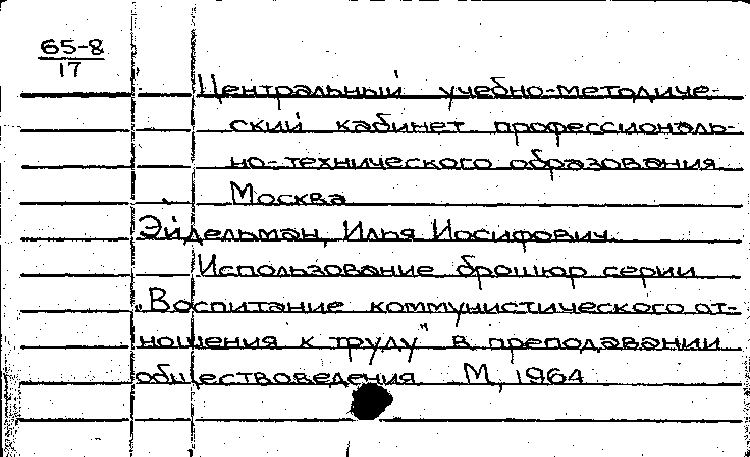 65-8
17
Центральный учебно-методиче-
ский кабинет профессиональ-
но-технического образования
Москва
Эйдельман, Илья Иосифович.
Использование брошюр серии
„Воспитание коммунистического от-
ношения к труду" в преподавании
обществоведения М, 1964